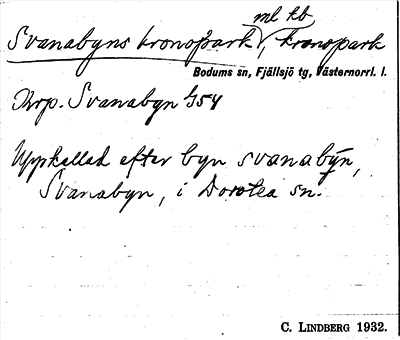 ml kb
Svanabyns kronopark, kronopark
Bodums sn, Fjällsjö tg, Västernorrl. l.
Krp. Svanabyn G54
Uppkallad efter byn svanabyn,
Svanabyn, i Dorotea sn.
C. LINDBERG 1932.